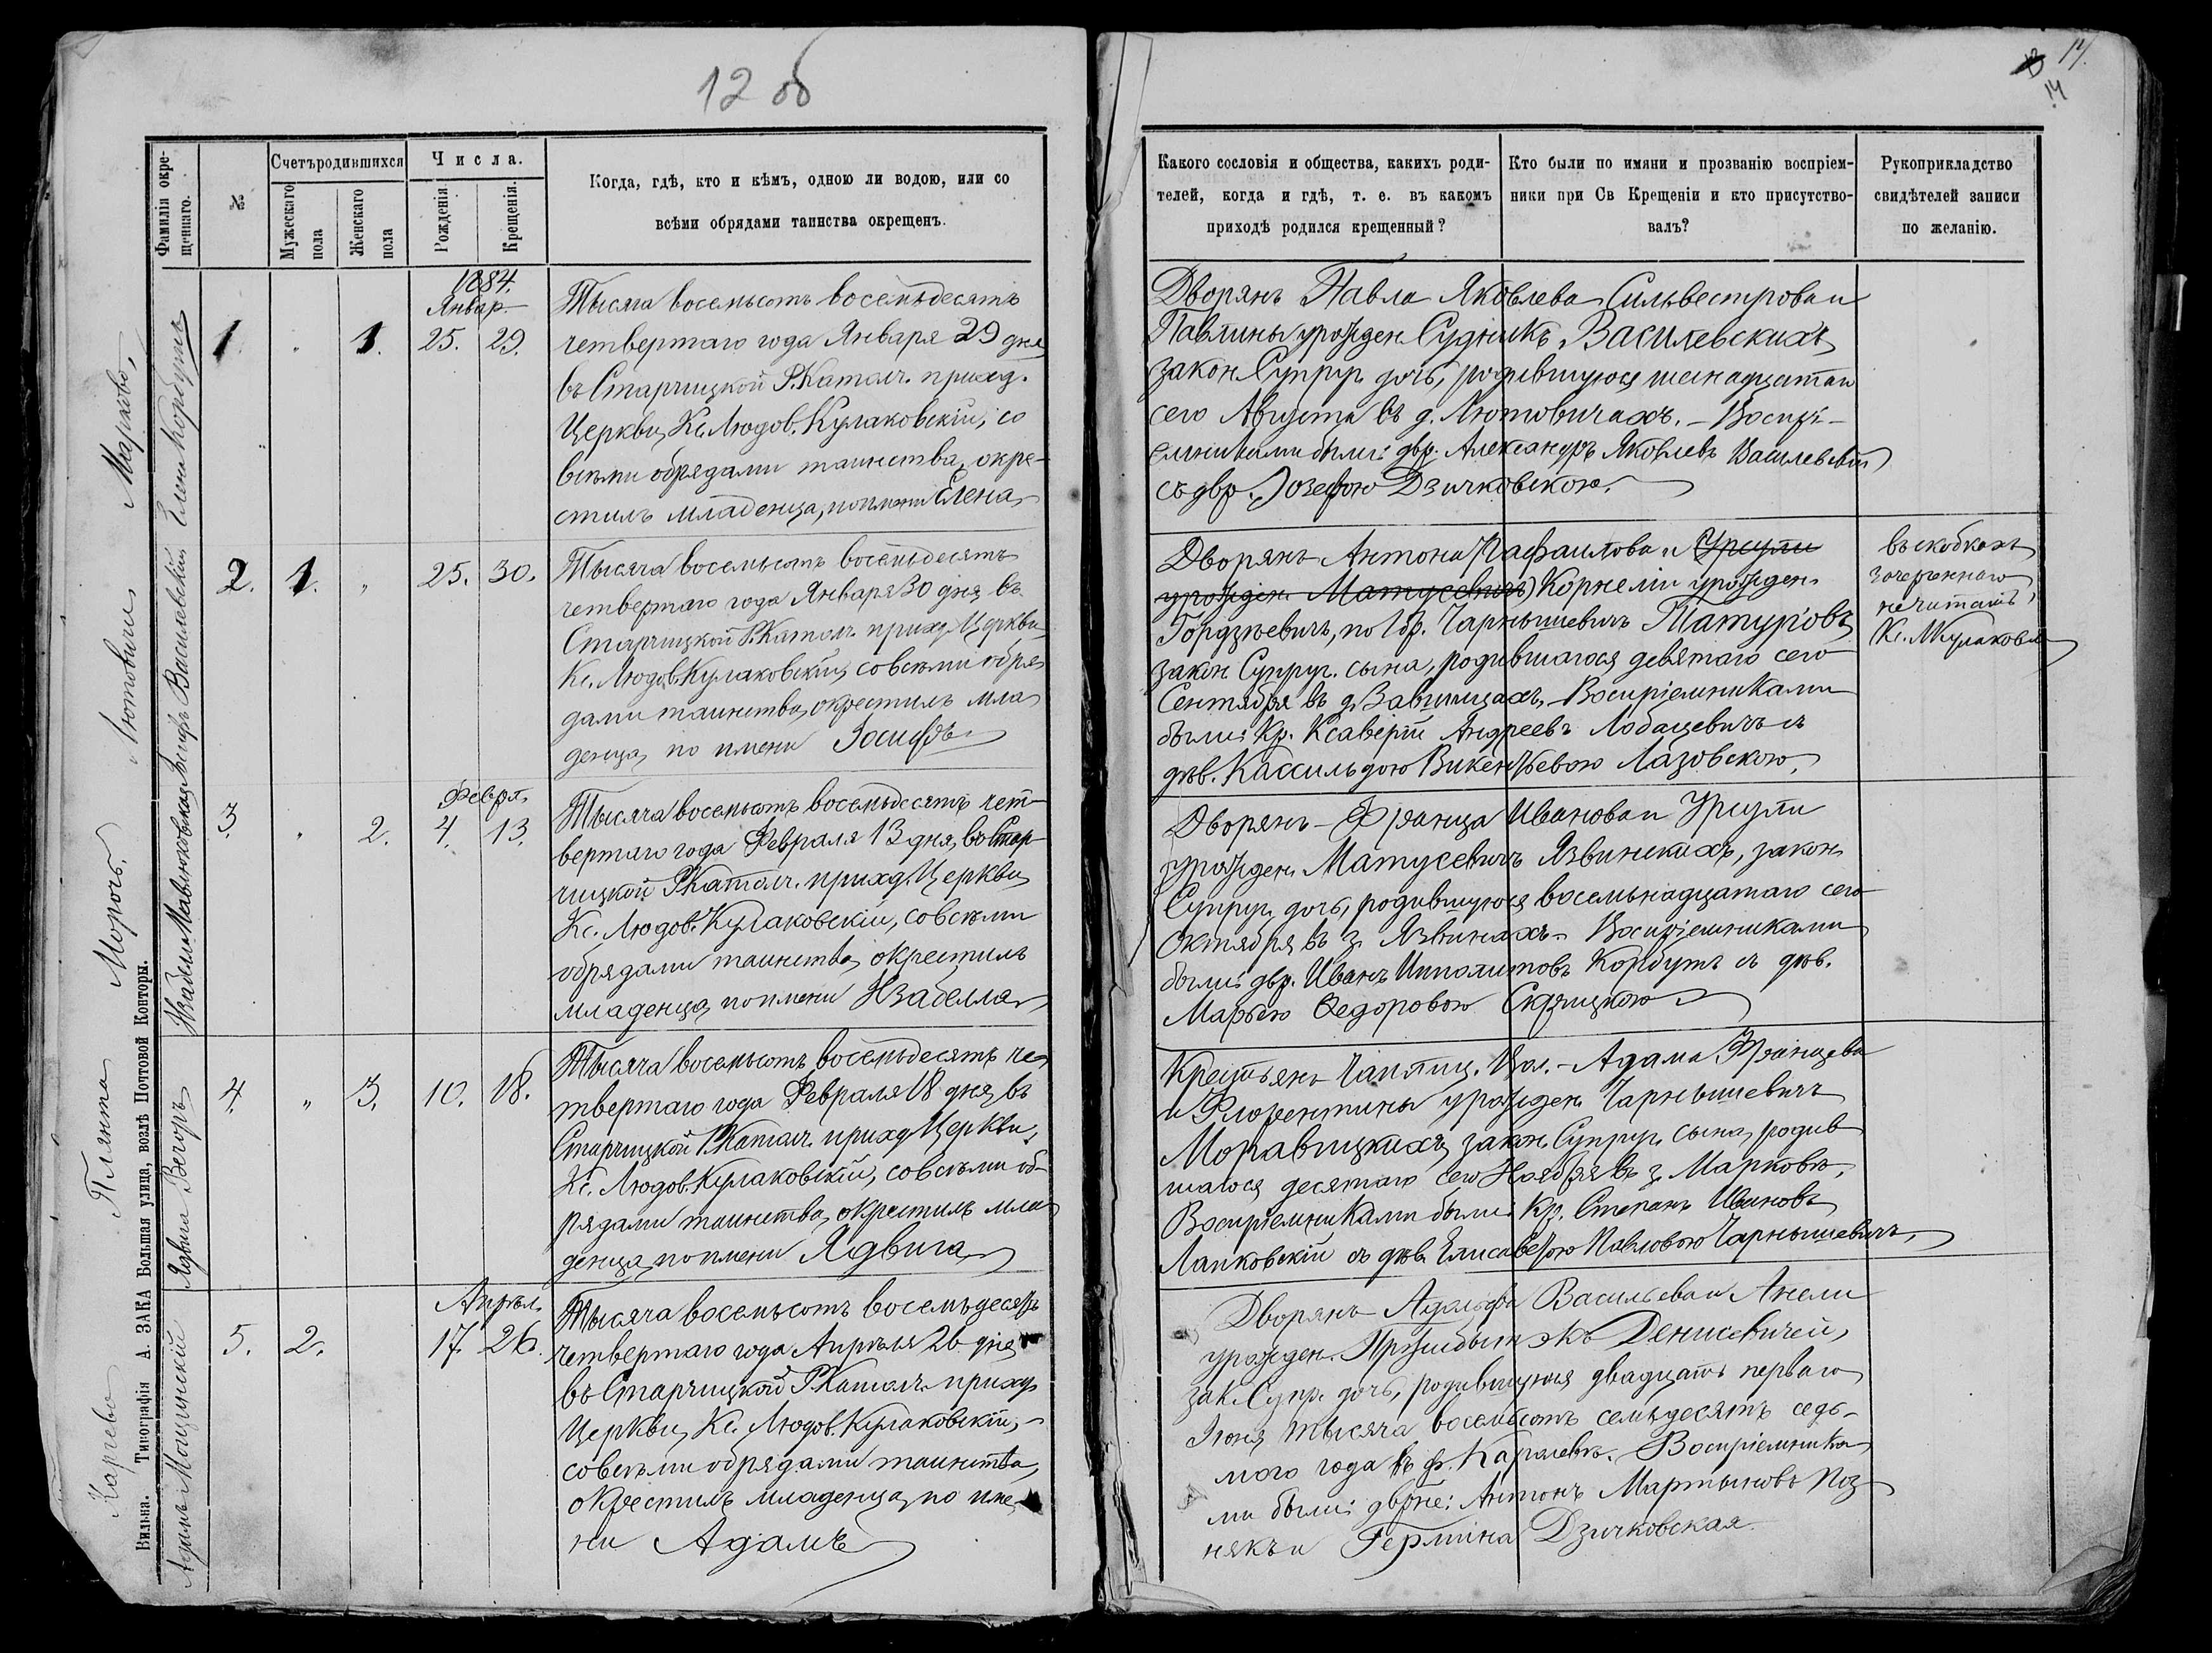 12 об
14
Фамилія окрещеннаго.
№
Счетъ родившихся
Мужескаго пола
Женскаго пола
Числа.
Рожденія
Крещенія.
Когда, гдѣ, кто и кѣмъ, одною ли водою, или со
всѣми обрядами таинства окрещенъ.
Елена Корбутъ
1
1.
1884.
Январ.
25. 29.
Тысяча восемьсотъ восемьдесятъ
четвертаго года Января 29 дня
въ Старчицкой Р.Катол. приход.
Церкви, Кс. Людов. Кулаковскій, со
всѣми обрядами таинства, окре-
стилъ младенца, по имени Елена
Іосифъ Василевскій
2. 1. „ 25. 30.
Тысяча восемьсотъ восемьдесятъ
четвертаго года Января 30 дня въ
Старчицкой Р.Катол. приход. Церкви
Кс. Людов. Кулаковскій, со всѣми обря
дами таинства, окрестилъ мла
денца, по имени Іосифъ
Изабелла
3. „ 2.
Февр.
4. 13.
Тысяча восемьсотъ восемьдесятъ чет-
вертаго года Февраля 13 дня, въ Стар-
чицкой Р.Катол. приход. Церкви,
Кс. Людов. Кулаковскій, со всѣми
обрядами таинства, окрестилъ
младенца, по имени Изабелла
Ядвига Вегеръ
4. „ 3. 10. 18.
Тысяча восемьсотъ восемьдесятъ че
твертаго года Февраля 18 дня, въ
Старчицкой Р.Катол. приход. Церкви,
Кс. Людов. Кулаковскій, со всѣми об-
рядами таинства, окрестилъ мла
денца, по имени Ядвига
Адамъ
5. 2.
Апрѣл.
17. 26.
Тысяча восемьсотъ восемьдесятъ
четвертаго года Апрѣля 26 дня
въ Старчицкой Р.Катол. приход.
Церкви, Кс. Людов. Кулаковскій,
со всѣми обрядами таинства,
окрестилъ младенца, по име-
ни Адамъ
Марково,
Лютовичи
Морочь.
Плянта
Вильна. Типографія А. ЗАКА Большая улица, возлѣ Почтовой Конторы.
Какого сословія и общества, какихъ роди-
телей, когда и гдѣ, т. е. въ какомъ
приходѣ родился крещенный?
Кто были по имяни и прозванію воспріем-
ники при Св Крещеніи и кто присутство-
валъ?
Рукоприкладство
свидѣтелей записи
по желанію.
Дворянъ Павла Яковлева Сильвестрова и
Павлины урожден. Судникъ, Василевскихъ,
закон. Супруг. дочь, родившуюся
сего Августа въ д. Лютовичахъ. – Воспрі-
емниками были: двр. Александръ Яковлевъ Василевскій
съ двр. Іозефою Дзичковскою.
Дворянъ – Антона Рафаилова и (Урсули
урожден. Матусевичъ) Корнеліи урожден.
Гордзѣевичъ, по Чарнышевичъ
закон. Супруг. сына, родившагося девятаго сего
Сентября въ д. Воспріемниками
были: Кр. Ксаверій Андреевъ Лобацевичъ съ
дѣв. Кассильдою Викентьевою Лазовскою.
въ скобкахъ
зачеркнаго
не читать,
Кс. Кулаковск
Дворянъ – Франца Иванова и Урсули
урожден. Матусевичъ Язвинскихъ, закон.
Супруг. дочь, родившуюся восемьнадцатаго сего
Октября въ з. Язвинахъ – Воспріемниками
были: двр. Иванъ Ипполитовъ Корбутъ съ дѣв.
Марьею Ѳедоровою
Крестьянъ Чаплиц. Вол. – Адама Францева
и Флорентины урожден. Чарнышевичъ
Моравицкихъ, закон. Супруг. сына, родив
шагося десятаго сего Ноября въ з. Марковѣ,
Воспріемниками были: Кр. Степанъ Ивановъ
Лапковскій съ дѣв. Елисаветою Павловою Чарнышевичъ,
Дворянъ – Адольфа Васильева и Анели
урожден. Пржибытэкъ Денисевичей,
зак. Супр. дочь, родившуюся двадцать перваго
Іюня тысяча восемьсотъ семьдесятъ седь-
мого года въ ф. Каролевѣ. Воспріемника
ми были: двряне: Антонъ Мартыновъ Поз
някъ и Герміна Дзичковская.